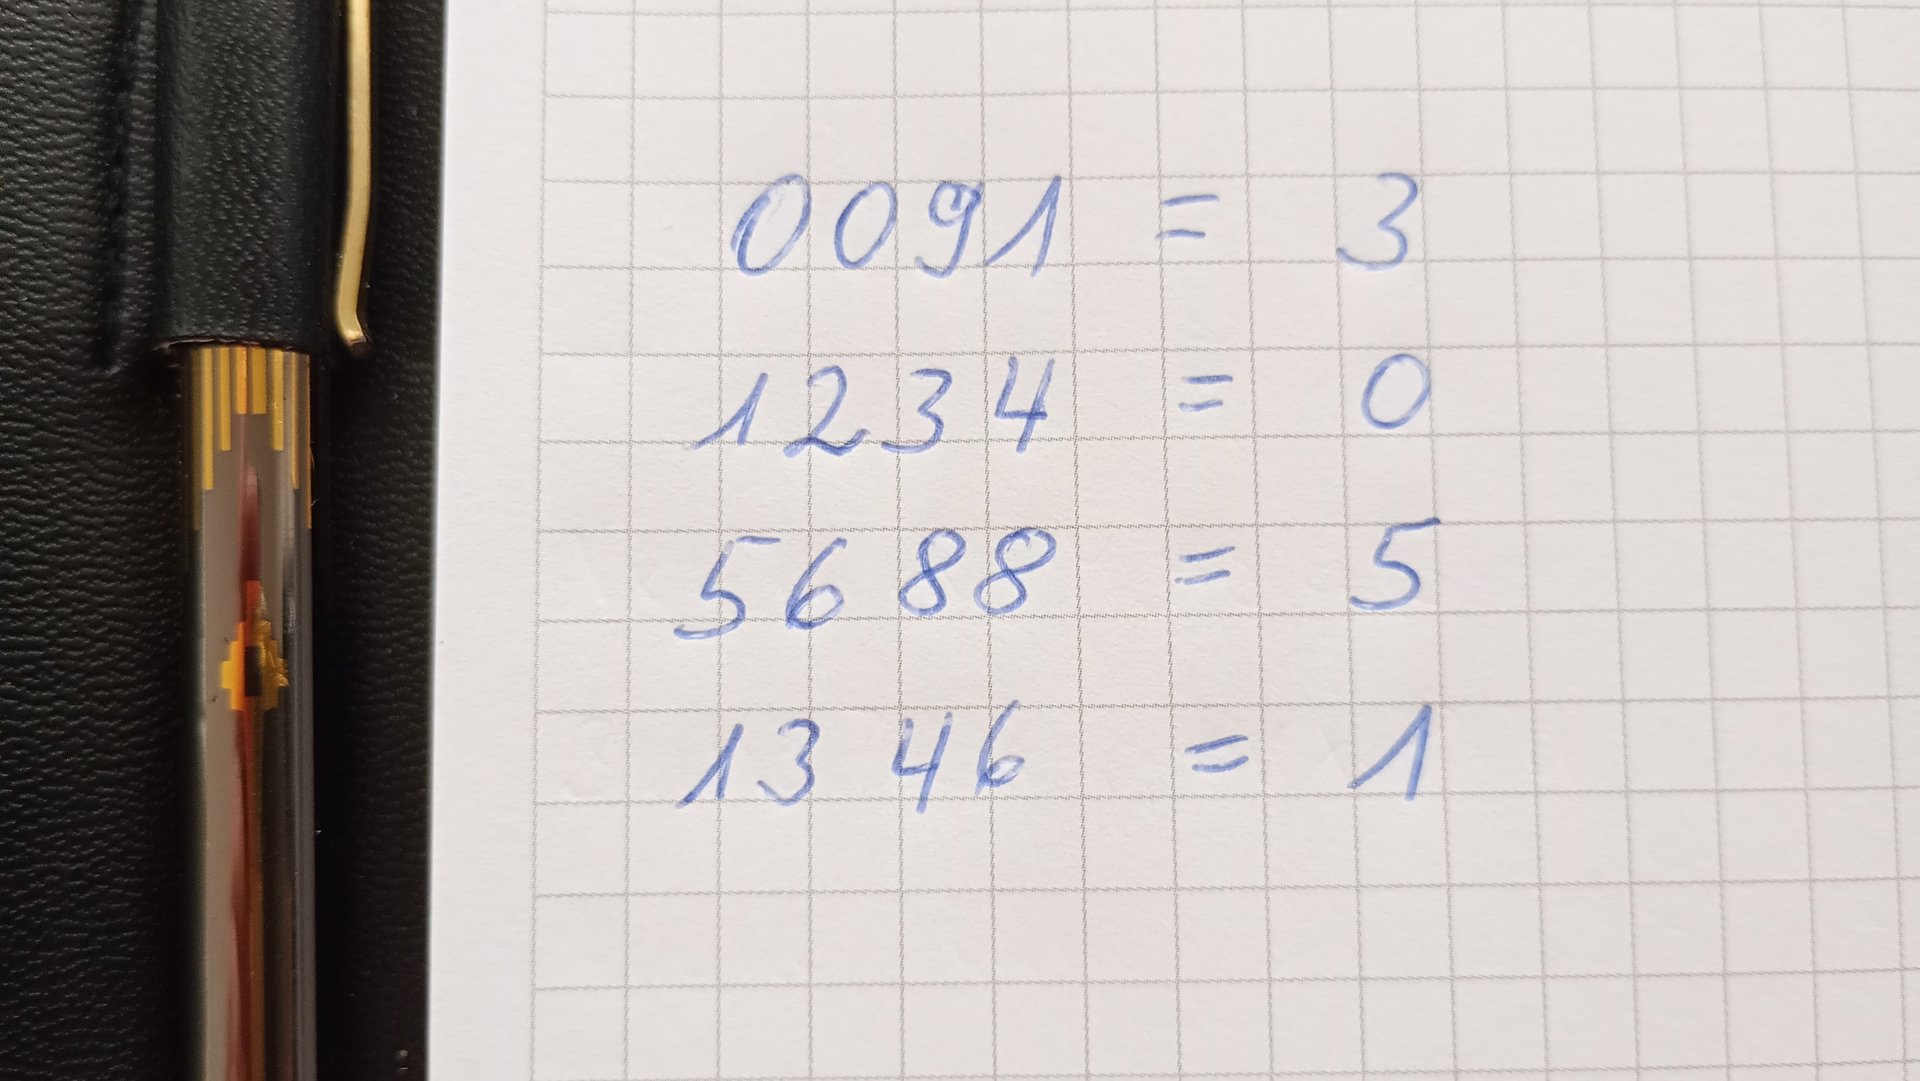 0091 = 3
1234 = 0
5688 = 5
1346 = 1